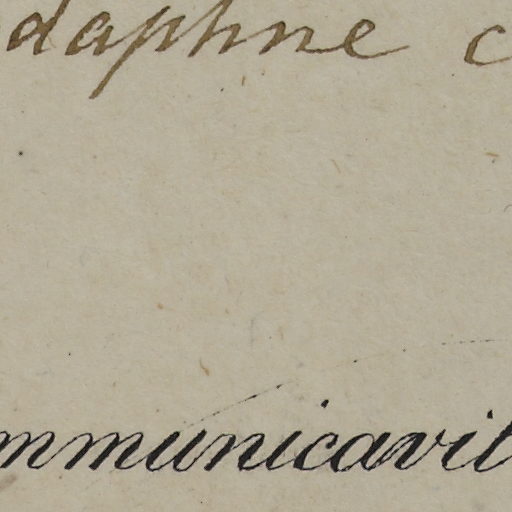 daphne c
mmunicavit